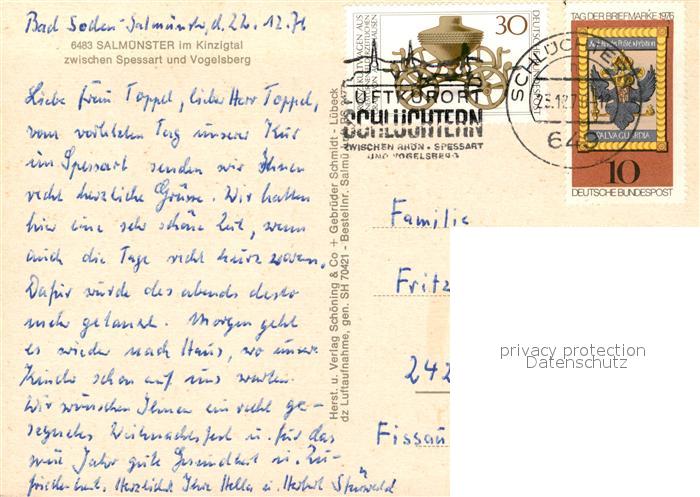 Bad Soden-Salmünster, d. 22.12.76
6483 SALMÜNSTER im Kinzigtal
zwischen Spessart und Vogelsberg
Liebe Frau Toppel, lieber Herr Toppel,
vom vorletzten Tag unserer Kur
im Spessart senden wir Ihnen
recht herzliche Grüsse. Wir hatten
hier eine sehr schöne Zeit, wenn
auch die Tage recht kurz waren.
Dafür wurde des abends desto
mehr getanzt. Morgen geht
es wieder nach Haus, wo unsere
Kinder schon auf uns warten.
Wir wünschen Ihnen ein recht ge-
segnetes Weihnachtsfest u. für das
neue Jahr gute Gesundheit u. Zu-
friedenheit. Herzlichst Ihre Hella u. Herbert
Herst. u. Verlag Schöning & Co + Gebrüder Schmidt - Lübeck
dz Luftaufnahme, gen. SH 70421 - Bestellnr. Salmü
30
DEUTSCHE BUNDESPOST
LUFTKURORT
SCHLÜCHTERN
ZWISCHEN RHÖN · SPESSART
UND VOGELSBERG
SCHLÜCHTERN
649
TAG DER BRIEFMARKE 1976
SALVA GUARDIA
10
DEUTSCHE BUNDESPOST
Familie
Fritz
242
Fissau
privacy protection
Datenschutz